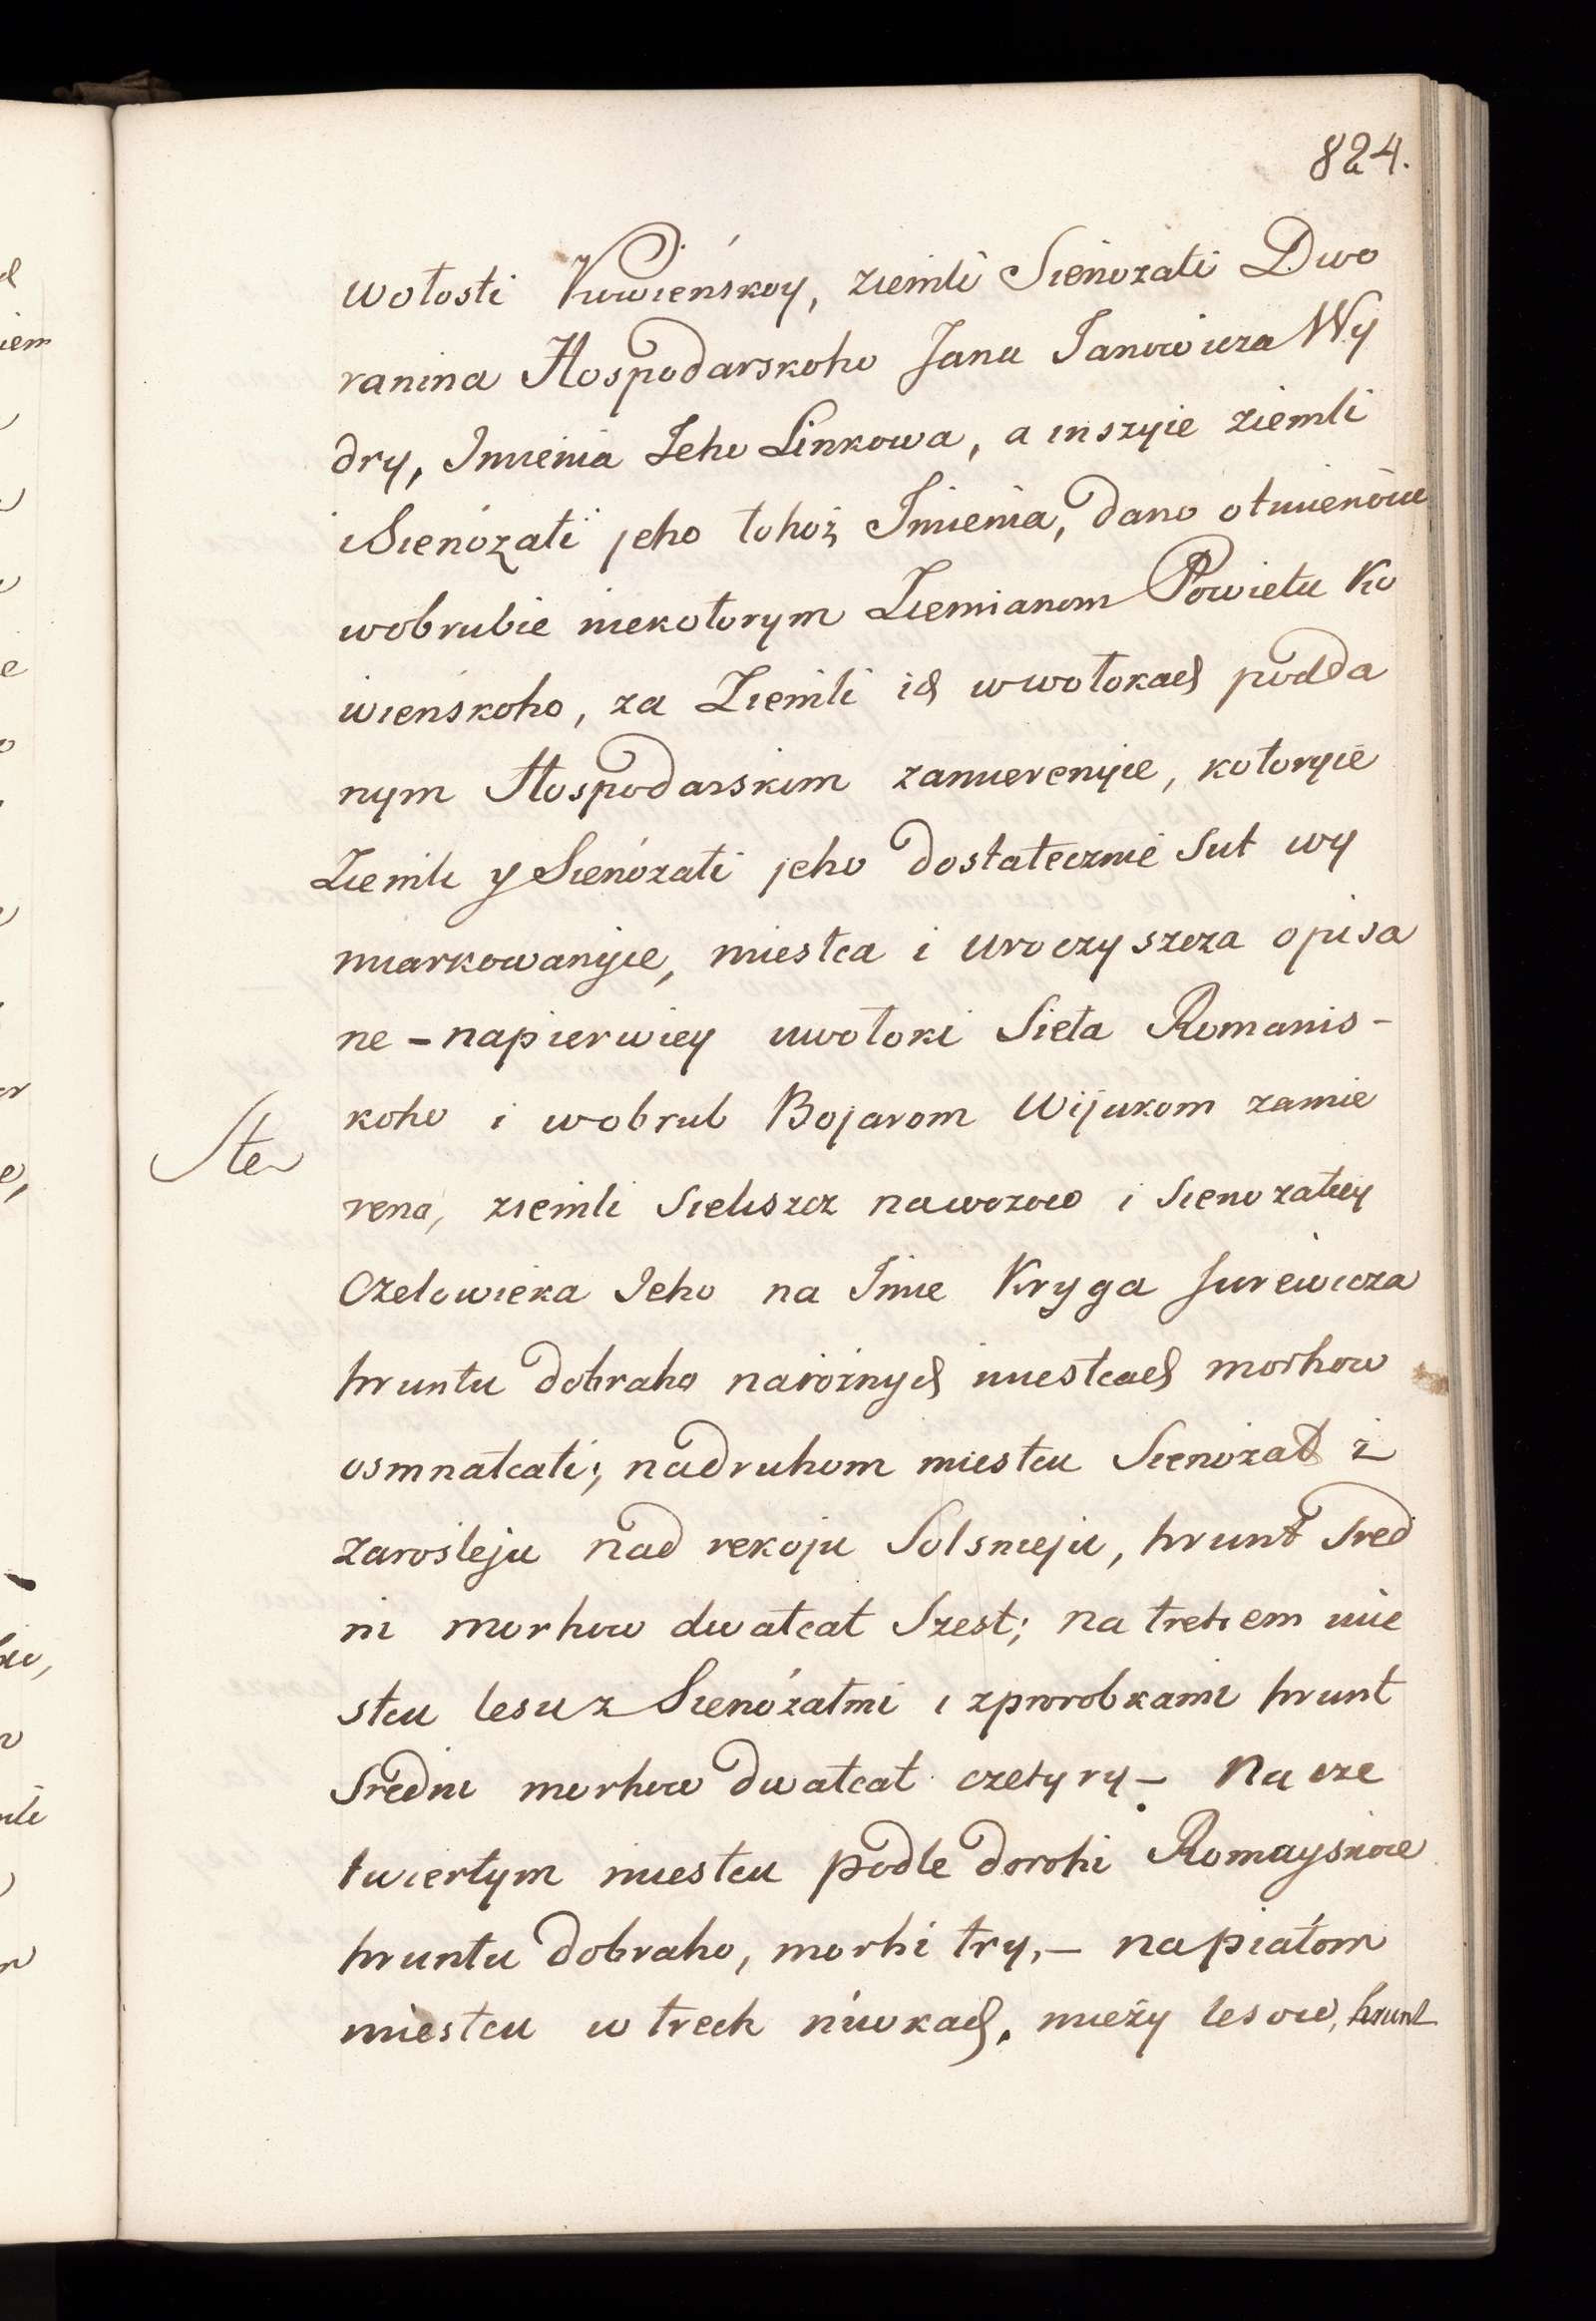 824.
wołosti Kowieńskoy, ziemli Sienożati Dwo
ranina Hospodarskoho Jana Janowicza Wy
dry, Imienia Jeho Linkowa, a inszyie ziemli
i Sienożati jeho tohoż Imienia, dano otmienoiu
wobrubie niekotorym Ziemianom Powietu Ko
wienskoho, za Ziemli ich wwołokach podda
nym Hospodarskim zamierenyie, kotoryie
Ziemli y Sienożati jeho dostatecznie Sut wy
miarkowanyie, miestca i uroczyszcza opisa
ne – napierwiey uwołoki Sieła Romanis-
koho i wobrub Bojarom Wijukom zamie
Ste
rena, ziemli Sieliszcz nawozow i Sienozatey
Czełowieka Jeho na Imie Kryga Jurewicza
hruntu dobraho narożnych miestcach morhow
osmnatcati; nadruhom miestcu Sienożat z
zarosleju nad rekoju Solsnieju, hrunt Sred
ni morhow dwatcat Szest; na tretiem mie
stcu lesu z Sienożatmi i zprorobkami hrunt
Sredni morhow dwatcat czetyry – Na cze
twiertym miestcu podle dorohi Romayskoie
hruntu dobraho, morhi try, – napiatom
miestcu w trech niwkach, mieży lesow, hrunt